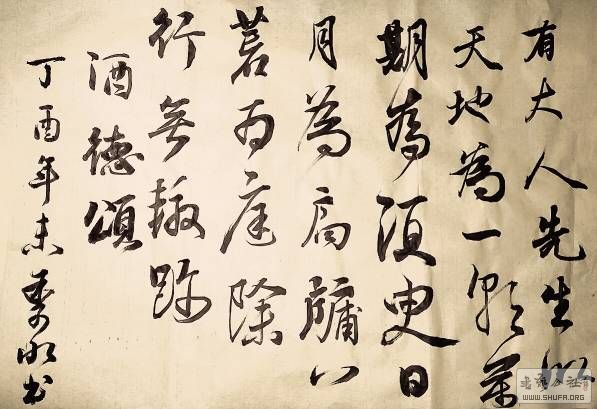 有大人先生以
天地為一朝萬
期為須臾日
月為扃牖八
荒為庭除
行無轍跡
酒德頌
丁酉年末書
書藝公社
WWW.SHUFA.ORG